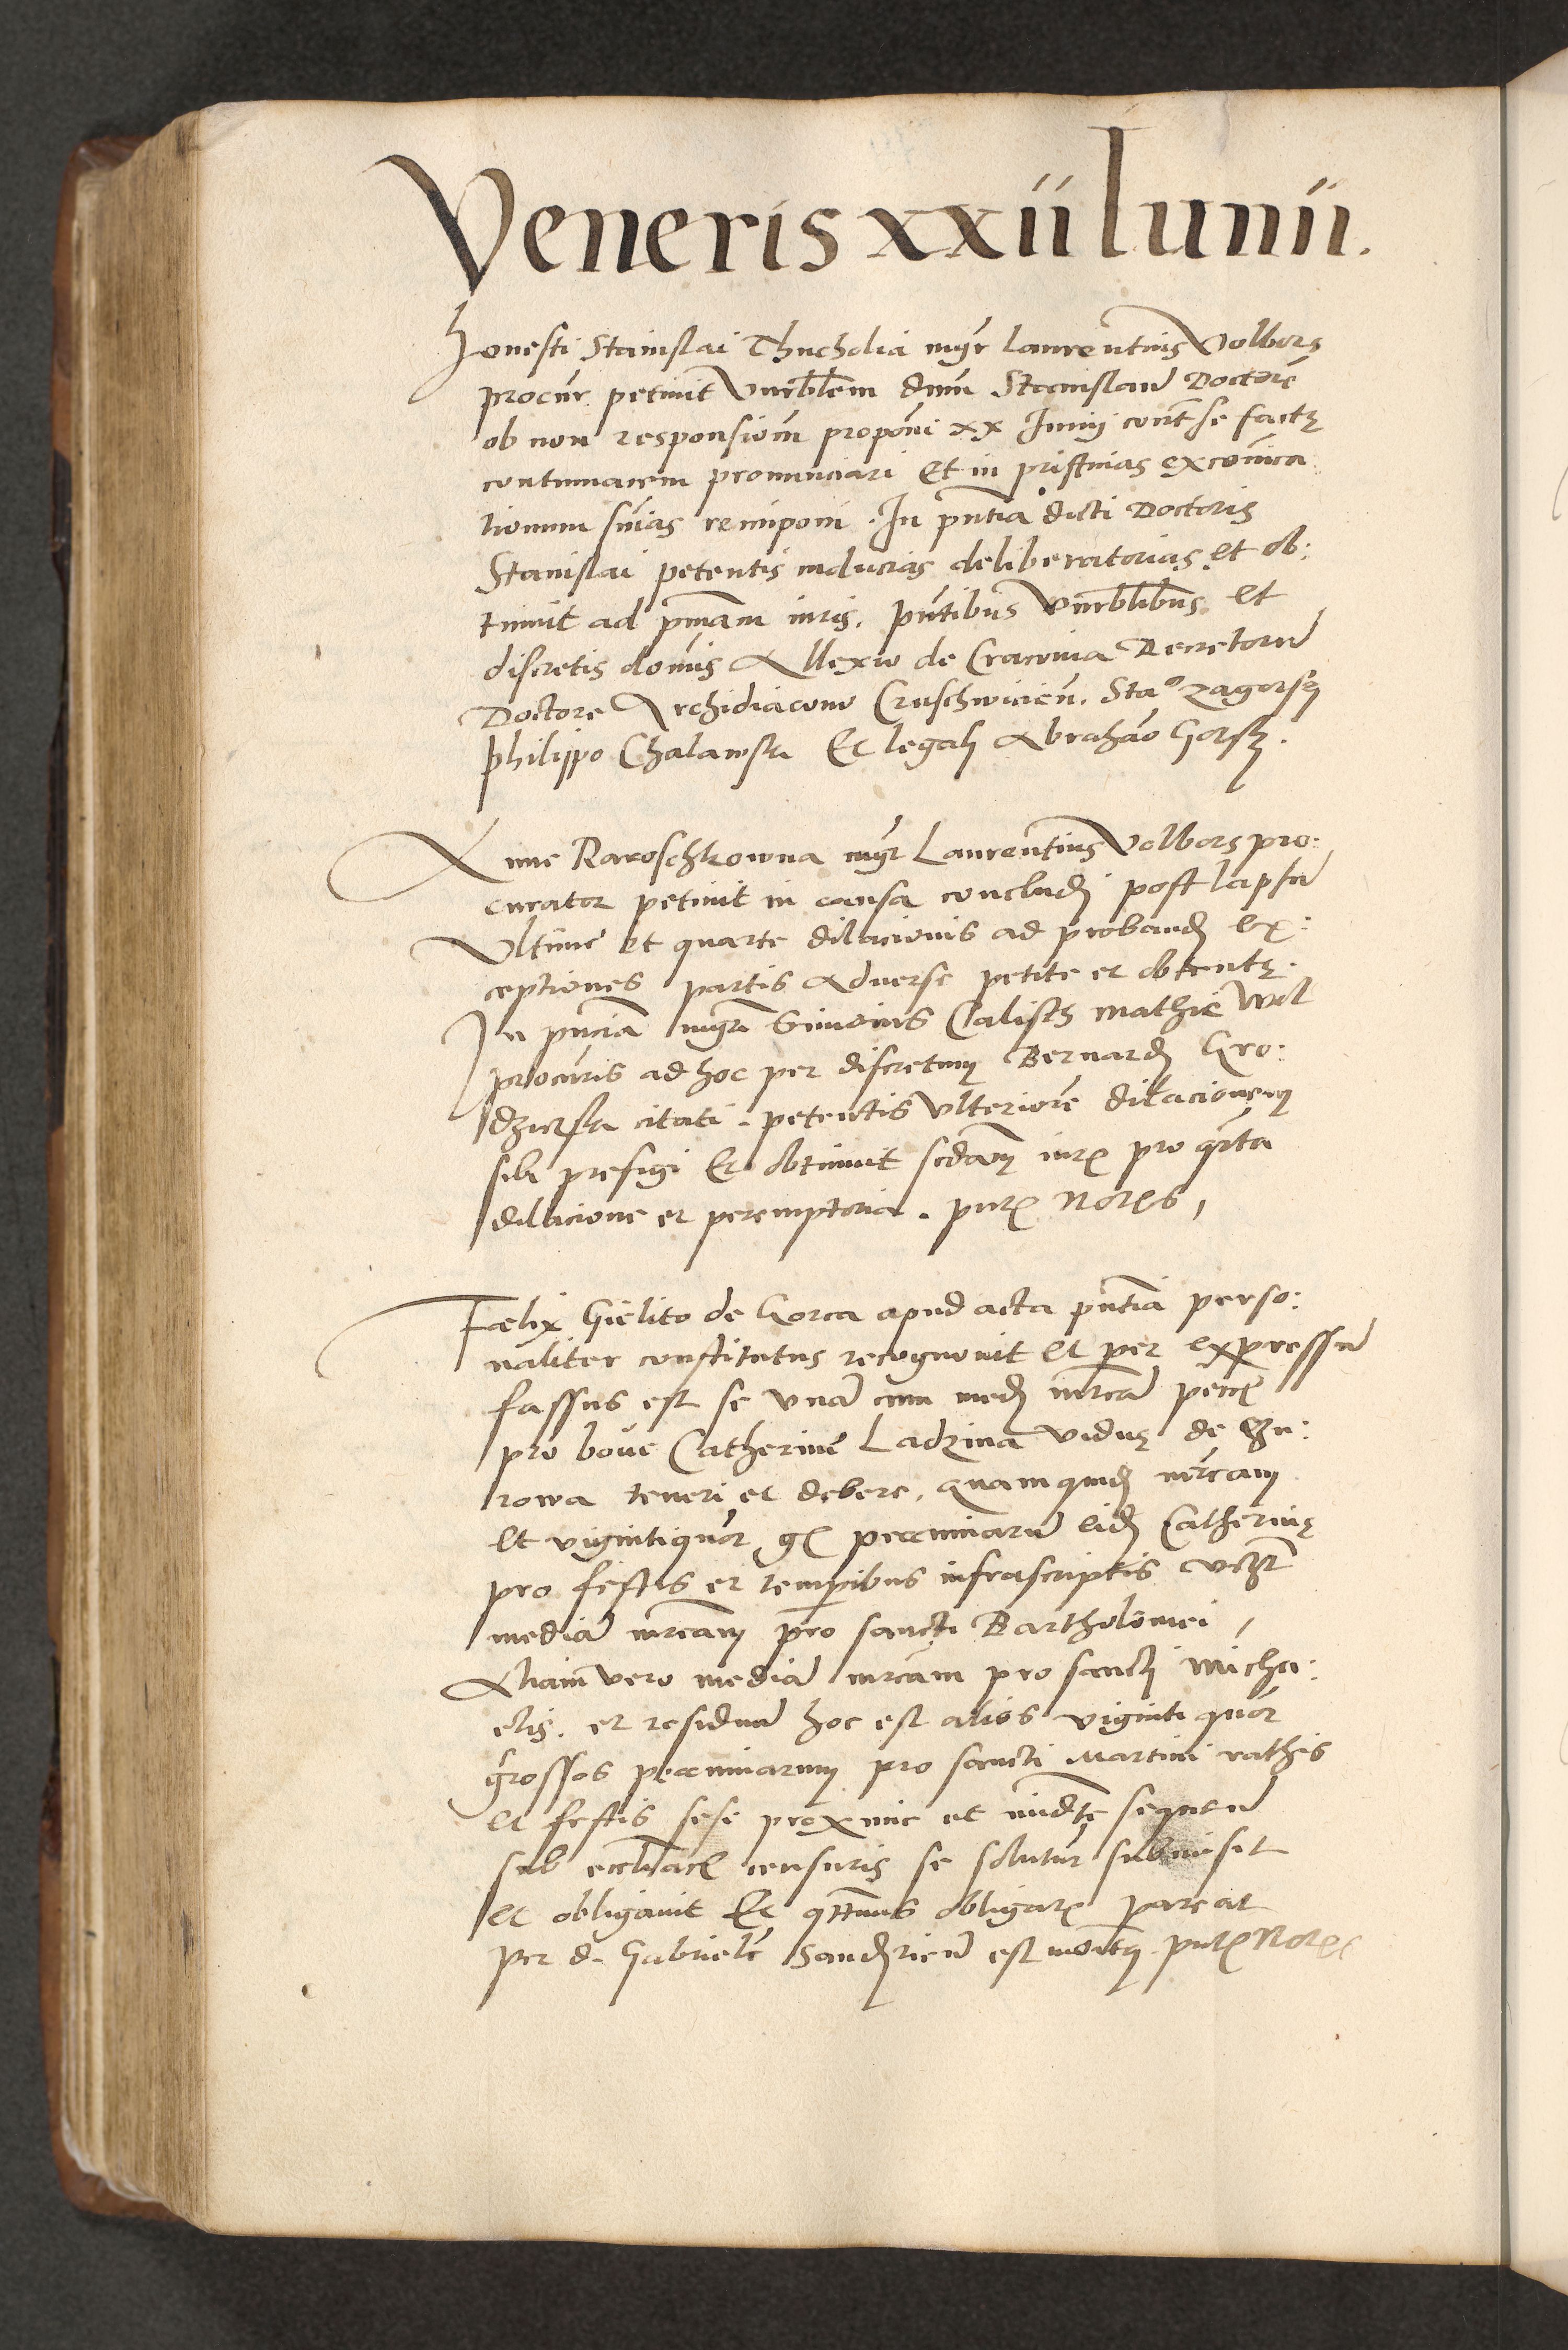 Veneris xxii Iunii.
Honesti Stanislai Thucholia mgr Laurentius Volbors
procur petiuit Vnrblem dnm Stanislaum Doctore
ob non responsiom proponi xx Iunij cont se factę
contumacem pronunciari Et in pristinas excomica
tionum snias reimponi. In pntia dicti Doctoris
Stanislai petentis inducias deliberatorias et ob:
tinuit ad pmam iuris. pntibus Vnrblibus et
discretis domis Allexio de Cracouia Decretorum
Doctore Archidiacono Cruschwicien. Stao Zagorsky
Philippo Chalawsky Et legali Abrahao Gorsky.
Anne Raroschkowna mgr Laurentius Volbors pro:
curator petiuit in causa concludi post lapsum
Vltime et quarte dilacionis ad proband ex:
ceptiones partis aduerse petite et obtentę.
In pncia mgri Simonis Calisch Mathie Wol
procuris ad hoc per discretum Bernard Gro:
citati. petentis Vlteriorem dilacionem
sibi prefigi Et obtinuit scdam iur pro qrta
dilacione et peremptoria. pnt Nor
Fælix Gielito de Gorca apud acta pntia perso:
naliter constitutus recognouit et per expressum
fassus est se vnam cum med mrcam pecu
pro boue Catherine Ladzina viduę de
rowa teneri et debere, quam quid mrcam
et vigintiquor g pecuniarum eid Catherinę
pro festis et temporibus infrascriptis vczt
mediam mrcam pro sancti Bartholomei,
Aliam vero mediam mrcam pro sancti Micha:
elis. et residuum hoc est alios viginti quor
grossos pecuniarum pro sancti Martini rathis
et festis sese proxime et imdte sequen
sub ecclliac censuris se solutur submisit
et obligauit Et qttenus obligat pareat
per d. Gabriele est monit pnt Nor